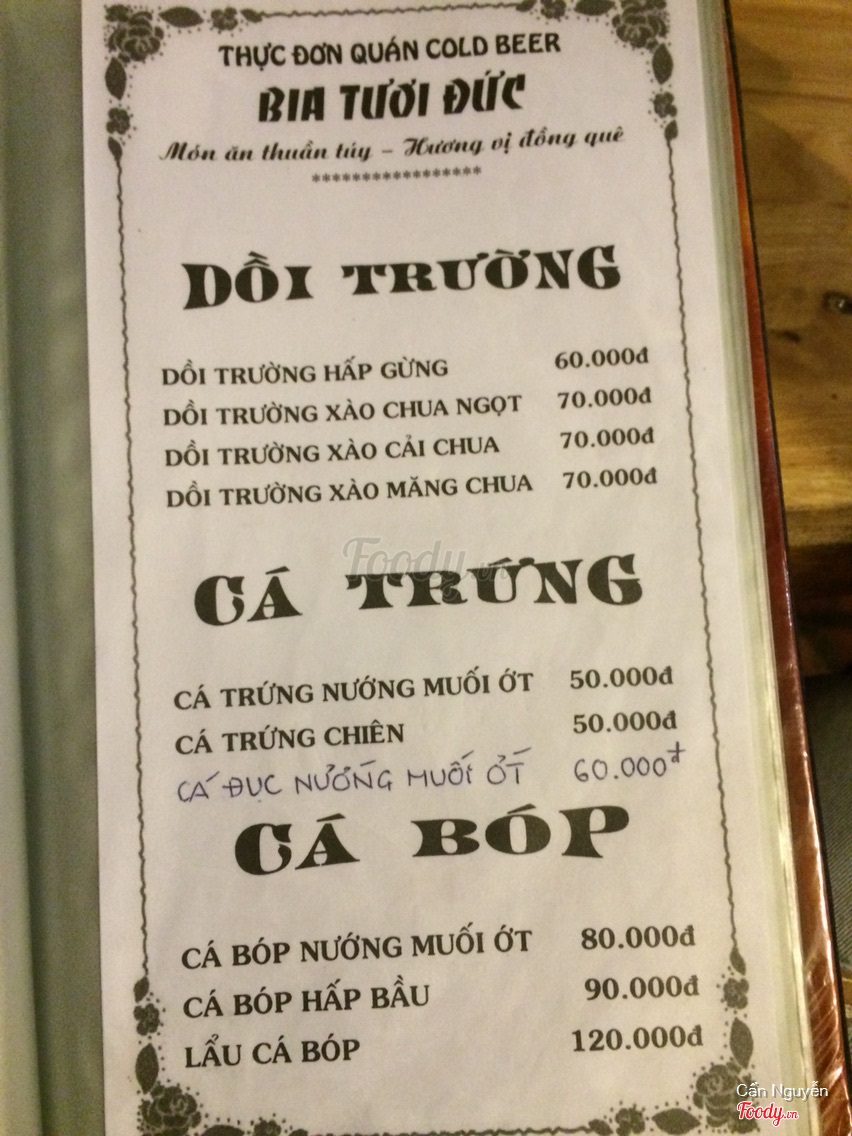 THỰC ĐƠN QUÁN COLD BEER
BIA TƯƠI ĐỨC
Món ăn thuần túy – Hương vị đồng quê
*****************
DỒI TRƯỜNG
DỒI TRƯỜNG HẤP GỪNG 60.000đ
DỒI TRƯỜNG XÀO CHUA NGỌT 70.000đ
DỒI TRƯỜNG XÀO CẢI CHUA 70.000đ
DỒI TRƯỜNG XÀO MĂNG CHUA 70.000đ
Foody.vn
CÁ TRỨNG
CÁ TRỨNG NƯỚNG MUỐI ỚT 50.000đ
CÁ TRỨNG CHIÊN 50.000đ
CÁ ĐỤC NƯỚNG MUỐI ỚT 60.000đ
CÁ BÓP
CÁ BÓP NƯỚNG MUỐI ỚT 80.000đ
CÁ BÓP HẤP BẦU 90.000đ
LẨU CÁ BÓP 120.000đ
Cấn Nguyễn
Foody.vn